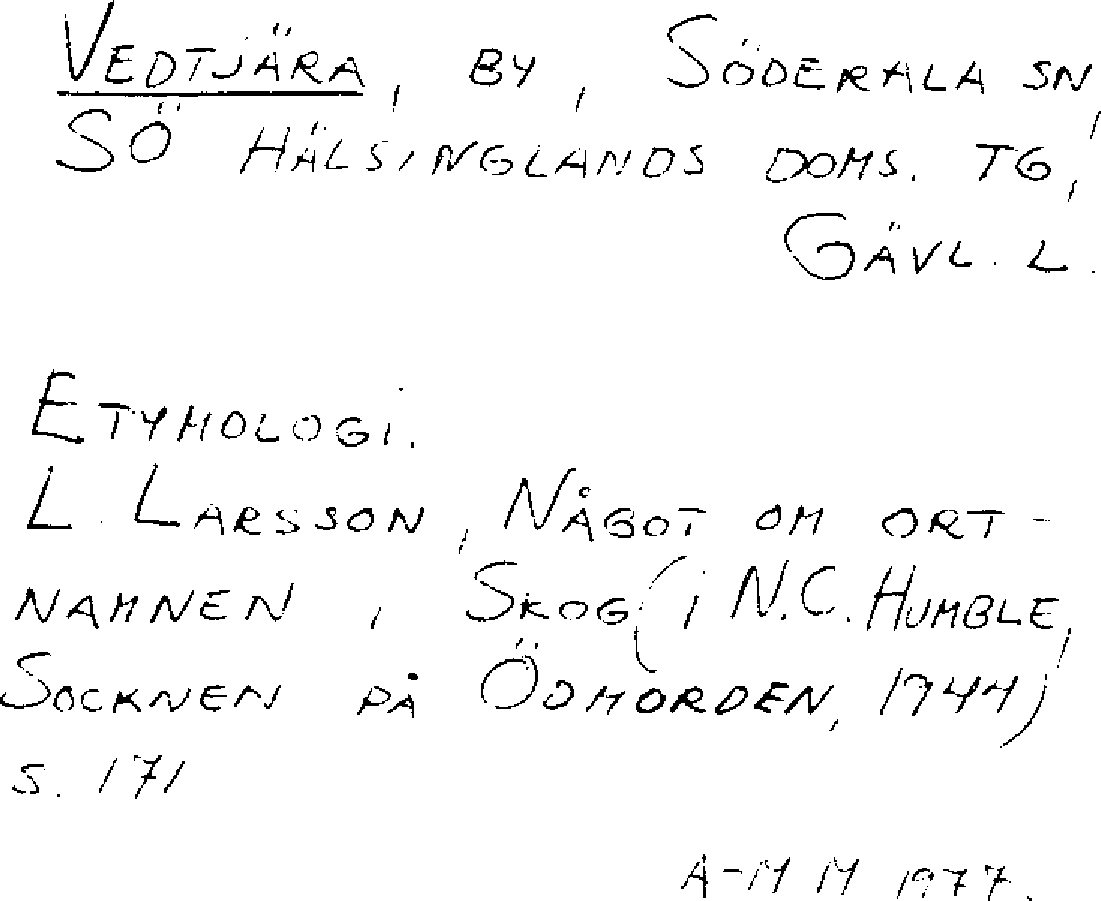 VEDTJÄRA, BY, SÖDERALA SN,
SÖ HÄLSINGLANDS DOMS. TG,
GÄVL. L.
ETYMOLOGI.
L. LARSSON, NÅGOT OM ORT-
NAMNEN I SKOG (i N.C. HUMBLE,
SOCKNEN PÅ ÖDMORDEN, 1944)
S. 171
A-M M 1977.